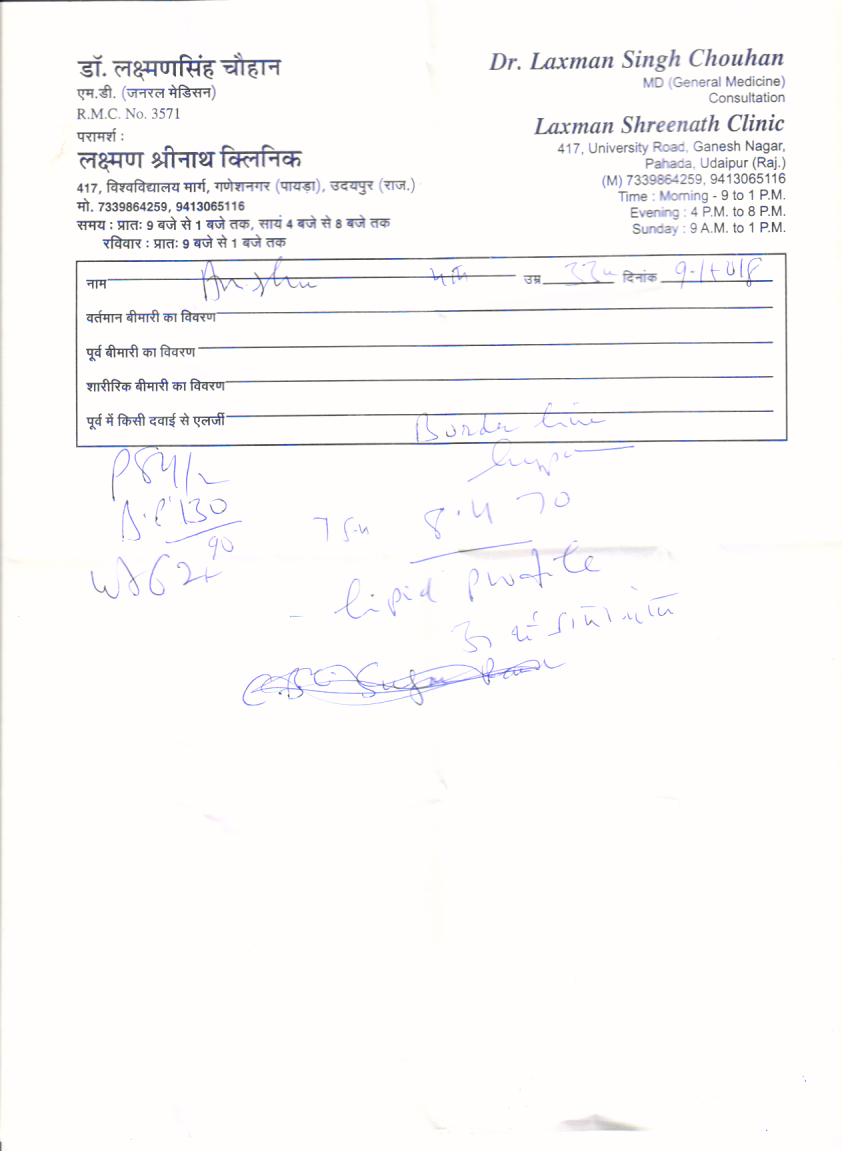 डॉ. लक्ष्मणसिंह चौहान
एम.डी. (जनरल मेडिसन)
R.M.C. No. 3571
परामर्श :
लक्ष्मण श्रीनाथ क्लिनिक
417, विश्वविद्यालय मार्ग, गणेशनगर (पायड़ा), उदयपुर (राज.)
मो. 7339864259, 9413065116
समय : प्रातः 9 बजे से 1 बजे तक, सायं 4 बजे से 8 बजे तक
रविवार : प्रातः 9 बजे से 1 बजे तक
Dr. Laxman Singh Chouhan
MD (General Medicine)
Consultation
Laxman Shreenath Clinic
417, University Road, Ganesh Nagar,
Pahada, Udaipur (Raj.)
(M) 7339864259, 9413065116
Time : Morning - 9 to 1 P.M.
Evening : 4 P.M. to 8 P.M.
Sunday : 9 A.M. to 1 P.M.
नाम उम्र दिनांक
वर्तमान बीमारी का विवरण
पूर्व बीमारी का विवरण
शारीरिक बीमारी का विवरण
पूर्व में किसी दवाई से एलर्जी
Border line
130
90
8.4 70
- lipid profile